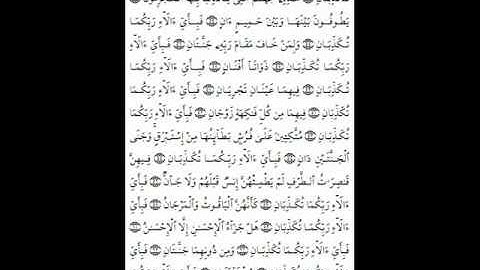 يَطُوفُونَ بَيْنَهَا وَبَيْنَ حَمِيمٍ ءَانٍ ۝ فَبِأَيِّ ءَالَآءِ رَبِّكُمَا
تُكَذِّبَانِ ۝ وَلِمَنْ خَافَ مَقَامَ رَبِّهِۦ جَنَّتَانِ ۝ فَبِأَيِّ ءَالَآءِ
رَبِّكُمَا تُكَذِّبَانِ ۝ ذَوَاتَآ أَفْنَانٍ ۝ فَبِأَيِّ ءَالَآءِ رَبِّكُمَا
تُكَذِّبَانِ ۝ فِيهِمَا عَيْنَانِ تَجْرِيَانِ ۝ فَبِأَيِّ ءَالَآءِ رَبِّكُمَا
تُكَذِّبَانِ ۝ فِيهِمَا مِن كُلِّ فَٰكِهَةٍ زَوْجَانِ ۝ فَبِأَيِّ ءَالَآءِ رَبِّكُمَا
تُكَذِّبَانِ ۝ مُتَّكِـِٔينَ عَلَىٰ فُرُشٍۭ بَطَآئِنُهَا مِنْ إِسْتَبْرَقٍ وَجَنَى
ٱلْجَنَّتَيْنِ دَانٍ ۝ فَبِأَيِّ ءَالَآءِ رَبِّكُمَا تُكَذِّبَانِ ۝ فِيهِنَّ
قَٰصِرَٰتُ ٱلطَّرْفِ لَمْ يَطْمِثْهُنَّ إِنسٌ قَبْلَهُمْ وَلَا جَآنٌّ ۝ فَبِأَيِّ
ءَالَآءِ رَبِّكُمَا تُكَذِّبَانِ ۝ كَأَنَّهُنَّ ٱلْيَاقُوتُ وَٱلْمَرْجَانُ ۝ فَبِأَيِّ
ءَالَآءِ رَبِّكُمَا تُكَذِّبَانِ ۝ هَلْ جَزَآءُ ٱلْإِحْسَٰنِ إِلَّا ٱلْإِحْسَٰنُ ۝
فَبِأَيِّ ءَالَآءِ رَبِّكُمَا تُكَذِّبَانِ ۝ وَمِن دُونِهِمَا جَنَّتَانِ ۝ فَبِأَيِّ